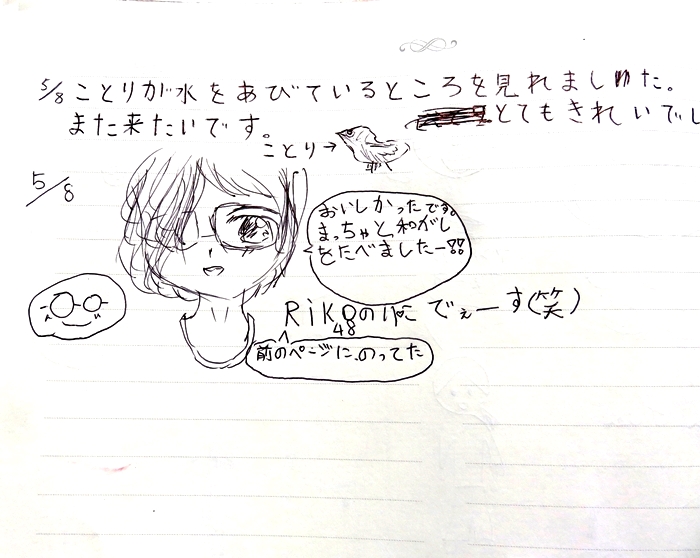 5/8 ことりが水をあびているところを見れました。
また来たいです。
とてもきれいでし
ことり→
5/8
おいしかったです。
まっちゃと和がし
をたべましたー!!
RiKo48のりこでぇーす(笑)
前のページに、のってた